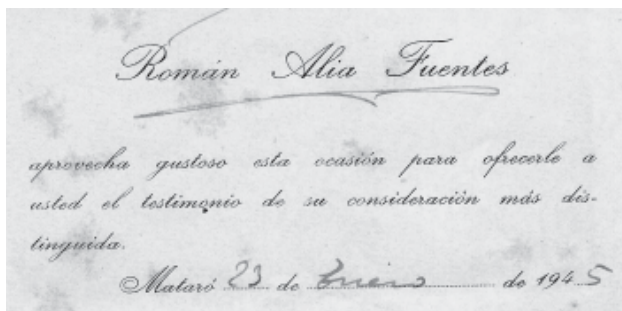 Román Alia Fuentes
aprovecha gustoso esta ocasión para ofrecerle a
usted el testimonio de su consideración más dis-
tinguida.
Mataró 23 de Enero de 1945